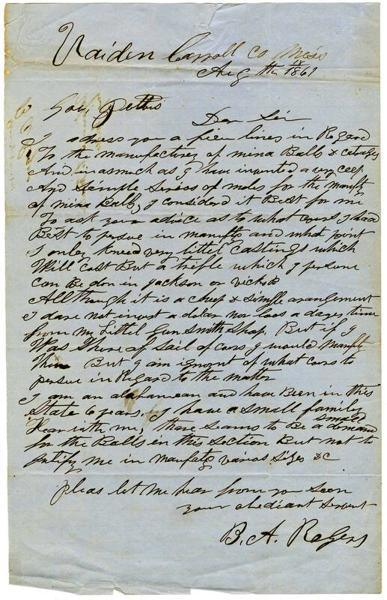 Vaiden Carroll Co Miss
Aug 1861
Gov Pettus
Dear Sir
I adress you a fiew lines in Regard
To the manufacturing of mina Balls &
And in as much as I have invented a very ceep
And Simple Series of moles for the
of mina Balls, I considerd it Best for me
To ask your advice as to what cours I
Best to persue in and what point
I only kneed very littel castings which
Will cost But a trifle which I persume
can Be don in Jackson or
All though it is a cheep & Simple arrangement
I dare not invest a dolar nor loos a days time
from my Littel Gun Smith Shop. But if I
Was Shore of Sail of cors I would
them But I am ignornt of what cors to
persue in Regard to the matter
I am an alabamean and have Been in this
State 6 years. I have a small family
Hear with me, there seams to Be a demand
for the Balls in this section But not to
me in various sizes &c
Pleas let me hear from you soon
your obediant servent
B. A. Rogers